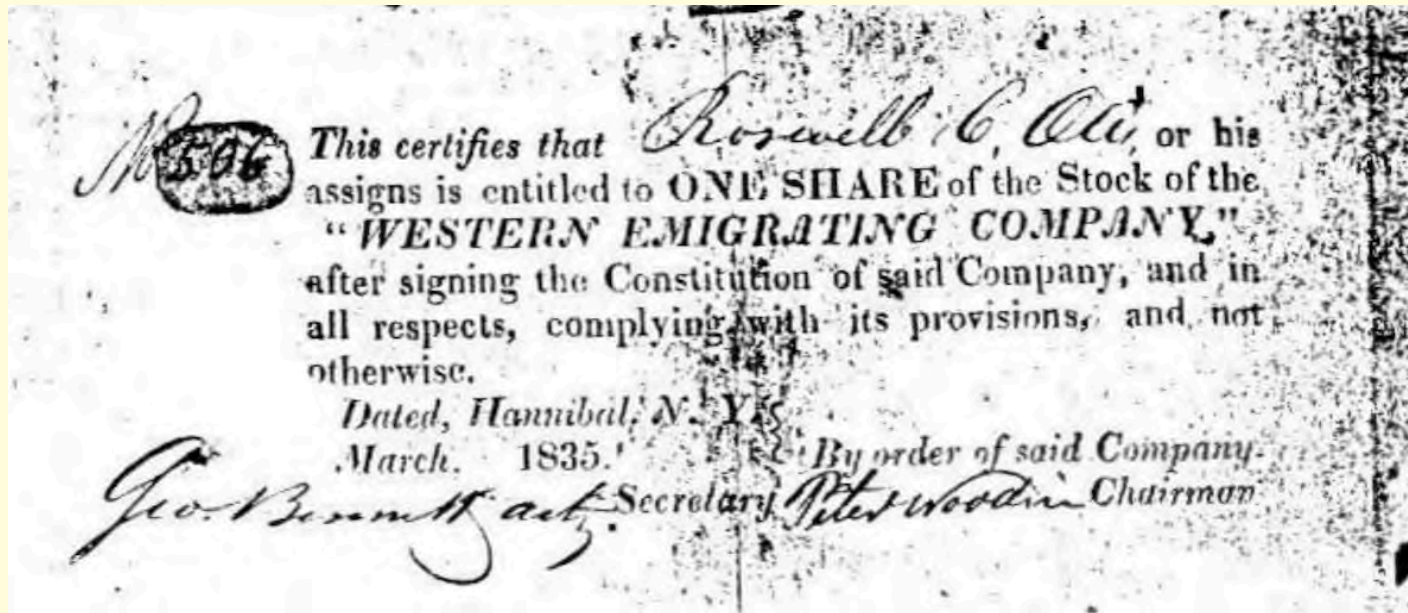 No 506 This certifies that Roswell C. Otis, or his
assigns is entitled to ONE SHARE of the Stock of the
"WESTERN EMIGRATING COMPANY,"
after signing the Constitution of said Company, and in
all respects, complying with its provisions, and not
otherwise.
Dated, Hannibal, N. Y.
March. 1835.
By order of said Company.
Geo. Bennett act. Secretary Peter Woodin Chairman